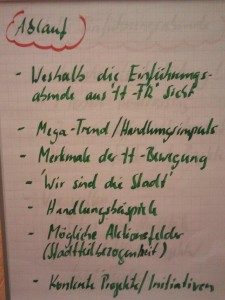 Ablauf
- Weshalb die Einführungs-
abende aus "tt-FR" Sicht
- Mega-Trend/Handlungsimpuls
- Merkmale der tt-Bewegung
- 'Wir sind die Stadt'
- Handlungsbeispiele
- Mögliche Aktionsfelder
(Stadtteilbezogenheit)
- Konkrete Projekte/Initiativen